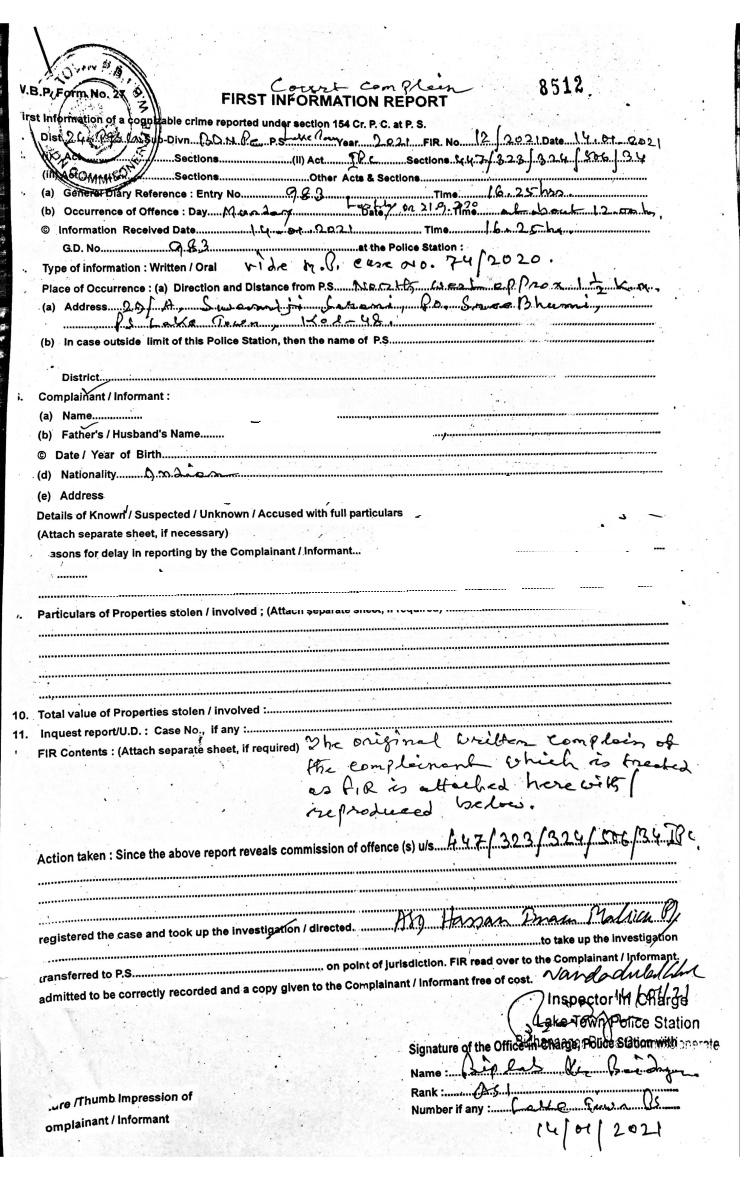 Court Complain
8512
W.B.P. Form No. 27
FIRST INFORMATION REPORT
irst Information of a cognizable crime reported under section 154 Cr. P. C. at P. S.
Dist. 24 Pgs (N) Sub-Divn. P.S. Lake Town Year 2021 FIR. No. 12/2021 Date 14.01.2021
(i) Act Sections (II) Act IPC Sections 447/323/324/506/34
(iii) Act Sections Other Acts & Sections
(a) General Diary Reference : Entry No. 983 Time 16.25 hrs
(b) Occurrence of Offence : Day Monday Date on 21.9.2020 Time at about 12.00 h.
© Information Received Date 14.01.2021 Time 16.25 h
G.D. No. 983 at the Police Station :
Type of information : Written / Oral vide M.P. case no. 74/2020.
Place of Occurrence : (a) Direction and Distance from P.S. North West approx 1 ½ K.m.
(a) Address 29/A, Swamiji Sarani, PO. Sree Bhumi,
PS Lake Town, Kol-48.
(b) In case outside limit of this Police Station, then the name of P.S.
District
Complainant / Informant :
(a) Name
(b) Father's / Husband's Name
© Date / Year of Birth
(d) Nationality Indian
(e) Address
Details of Known / Suspected / Unknown / Accused with full particulars
(Attach separate sheet, if necessary)
asons for delay in reporting by the Complainant / Informant...
Particulars of Properties stolen / involved ; (Attach separate sheet, if required)
10. Total value of Properties stolen / involved :
11. Inquest report/U.D. : Case No., if any :
FIR Contents : (Attach separate sheet, if required) The original written complain of
the complainant which is treated
as FIR is attached herewith/
reproduced below.
Action taken : Since the above report reveals commission of offence (s) u/s. 447/323/324/506/34 IPC.
registered the case and took up the investigation / directed. ASI Hassan Imam Mallick
to take up the investigation
transferred to P.S. on point of jurisdiction. FIR read over to the Complainant / Informant,
admitted to be correctly recorded and a copy given to the Complainant / Informant free of cost.
Inspector In Charge
Lake Town Police Station
Signature of the Office-in-Charge, Police Station with
Name : Biplab Kr Baidya
Rank : ASI
Number if any : Lake Town PS
14/01/2021
ure /Thumb Impression of
omplainant / Informant